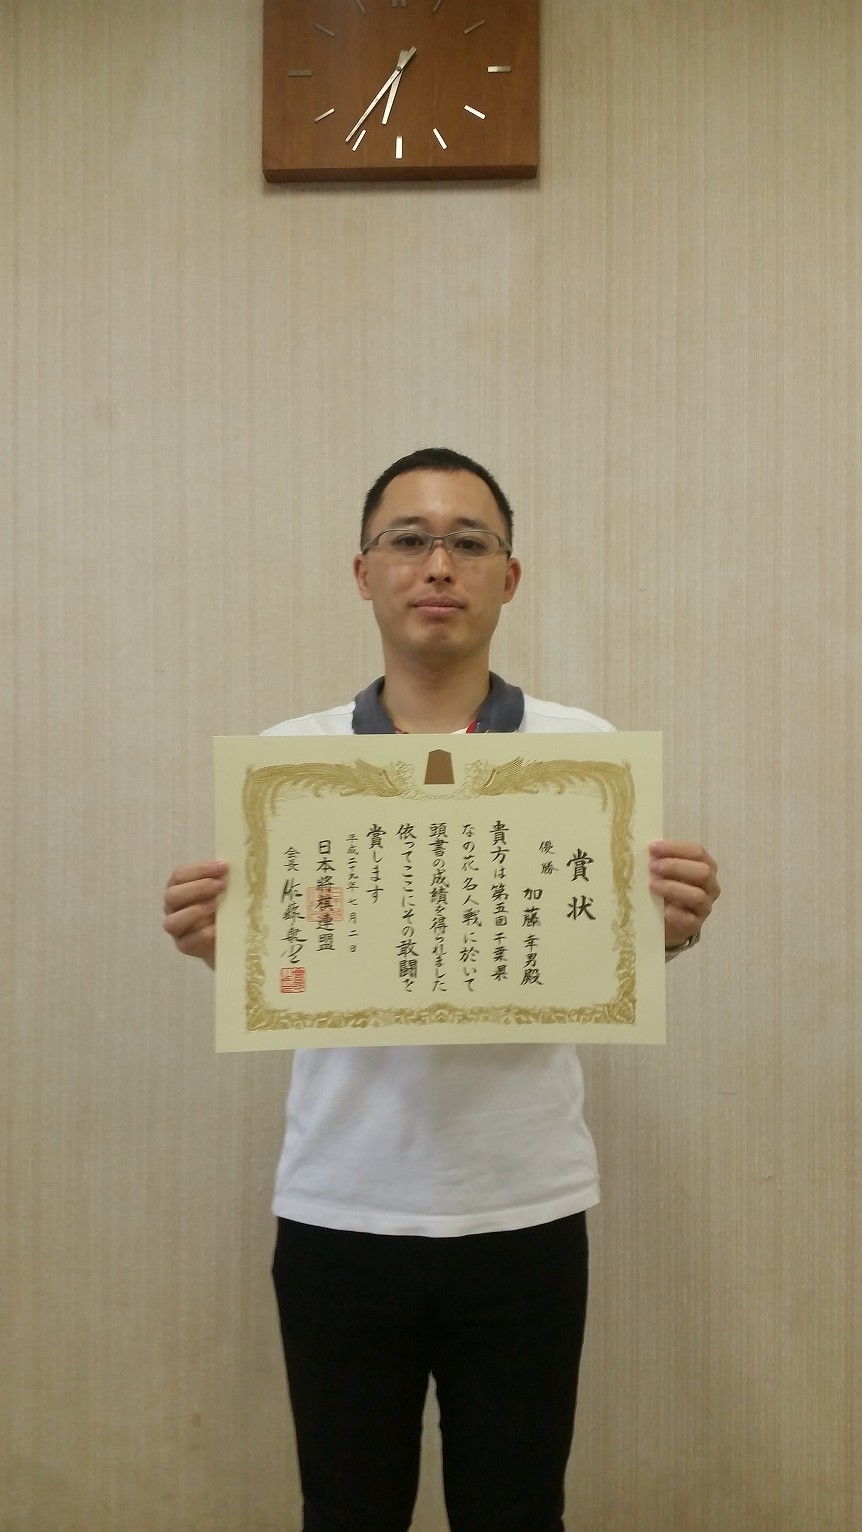 賞状
優勝
加藤幸男殿
貴方は第五回千葉県
なの花名人戦に於いて
頭書の成績を得られました
依ってここにその敢闘を
賞します
平成二十九年七月二日
日本将棋連盟
会長 佐藤康光